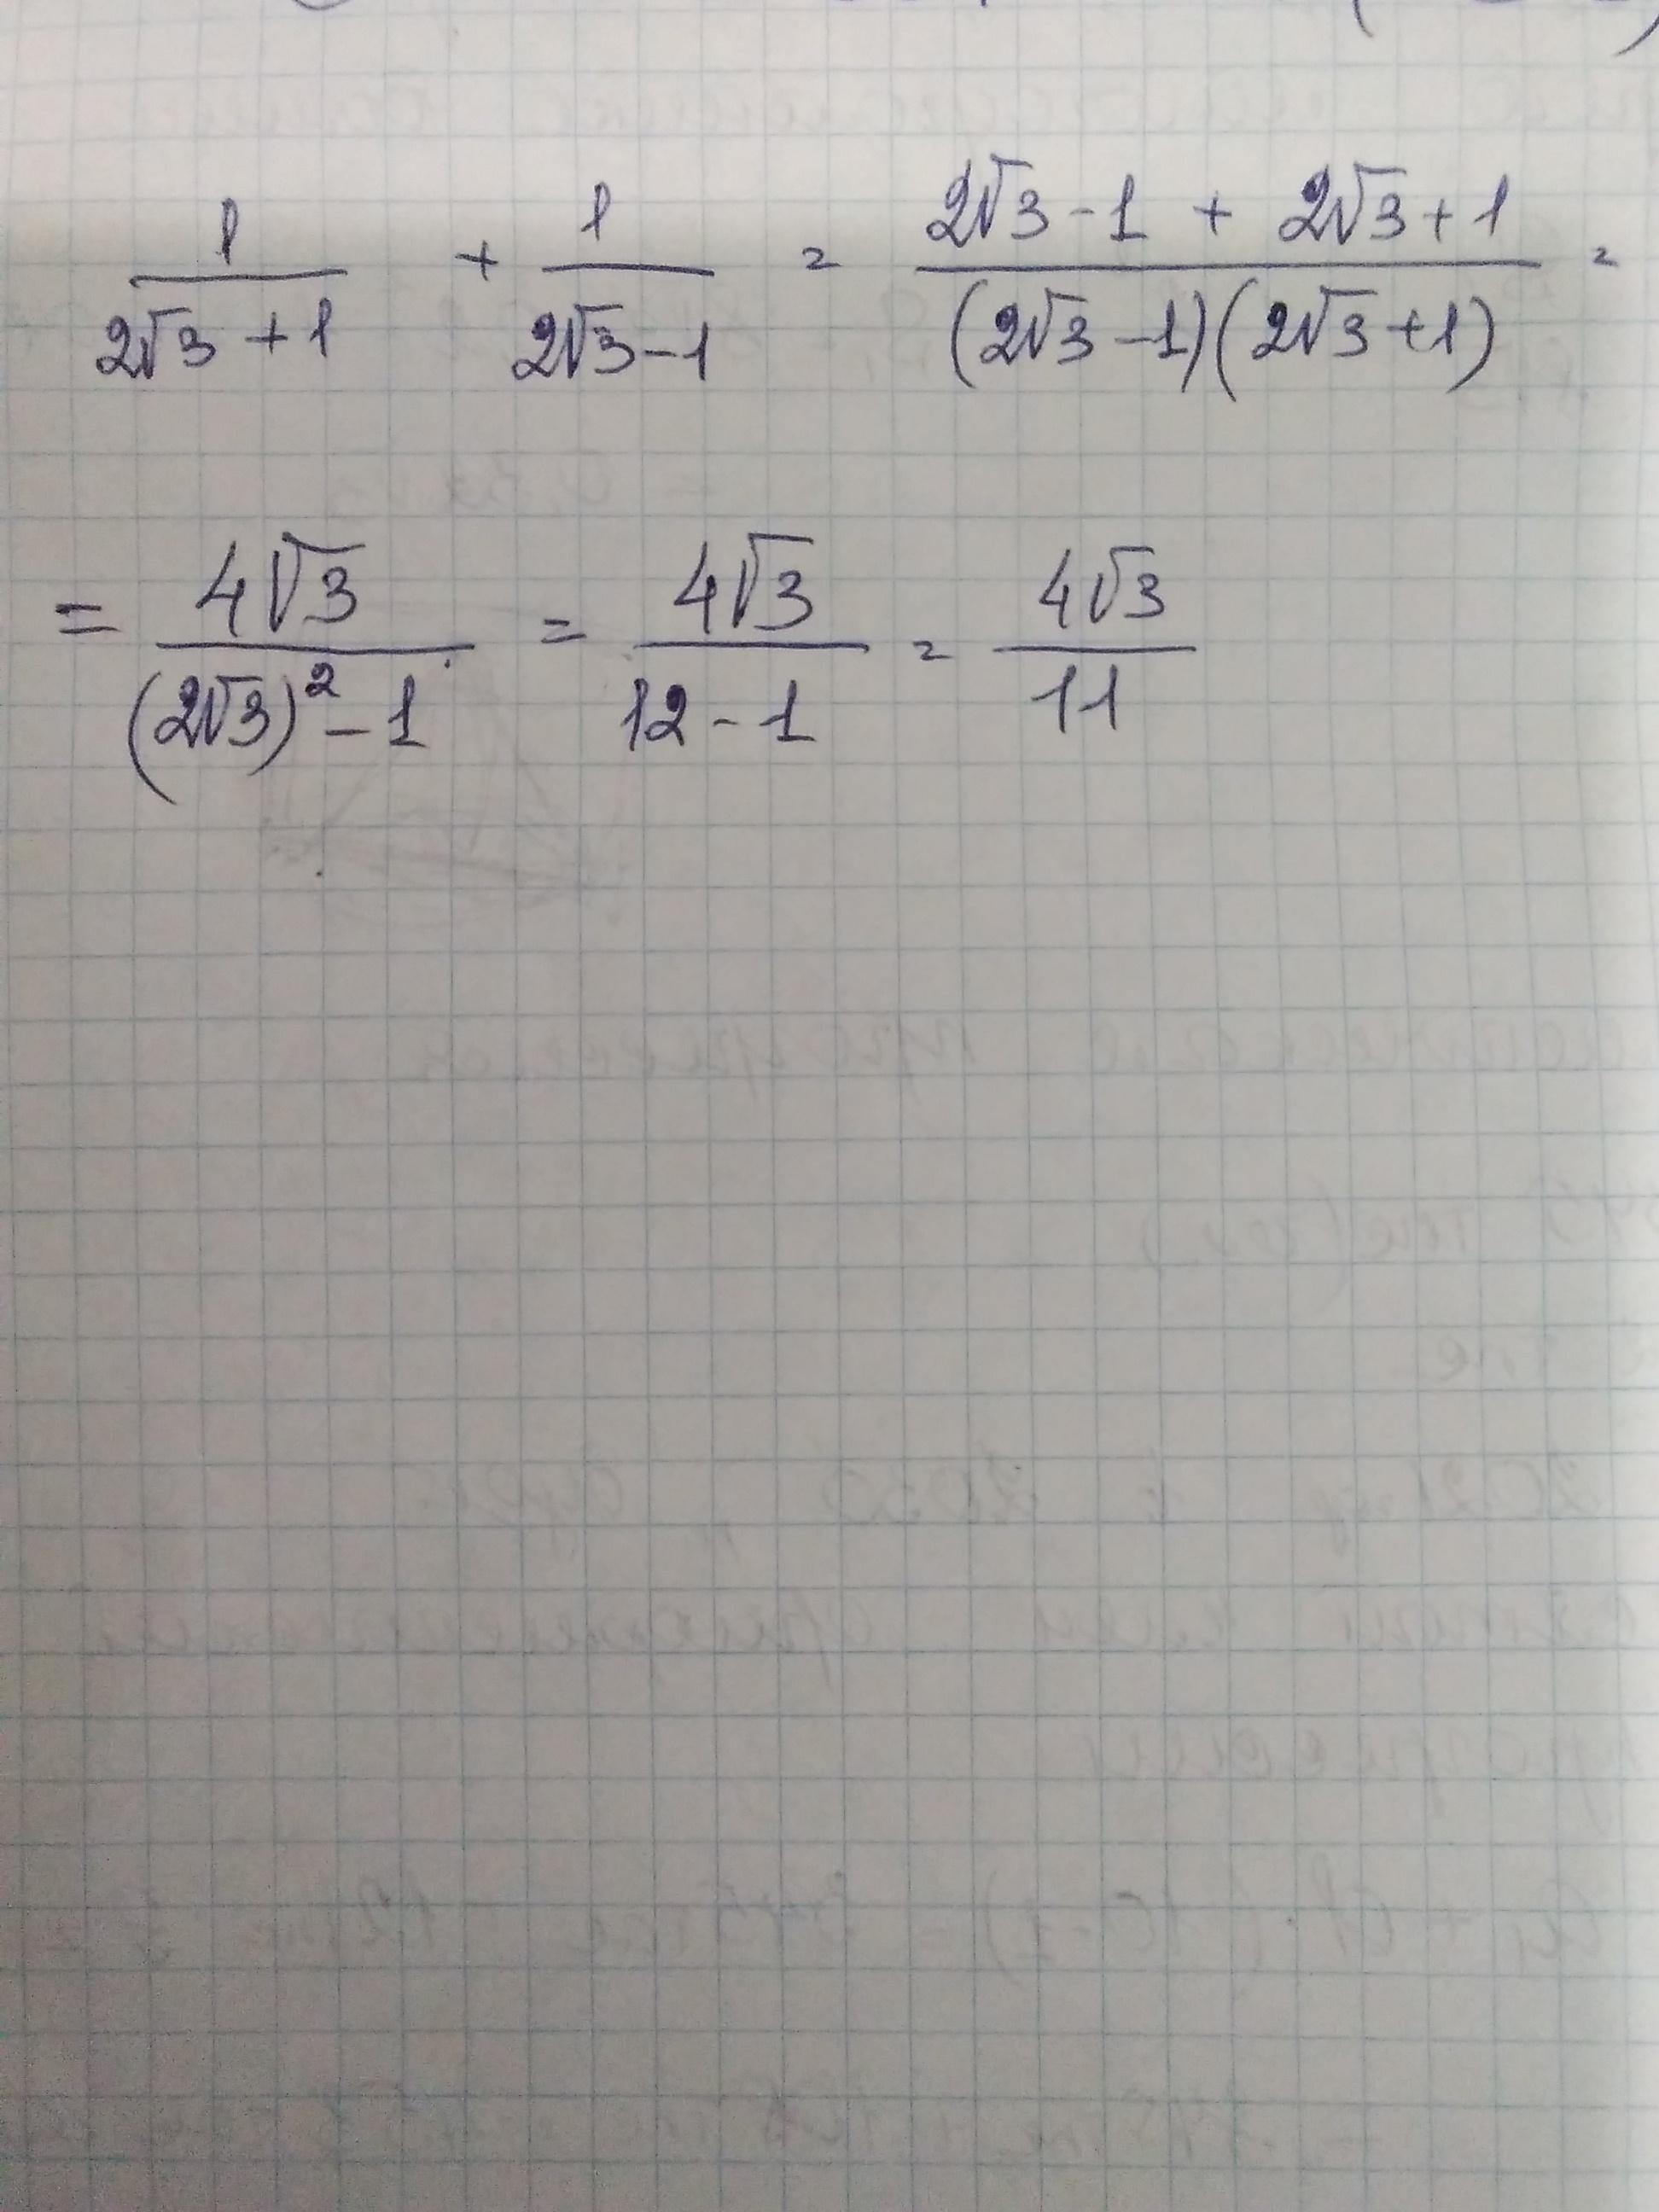 1/(2√3+1) + 1/(2√3-1) = (2√3-1 + 2√3+1)/((2√3-1)(2√3+1)) =
= 4√3/((2√3)²-1) = 4√3/(12-1) = 4√3/11